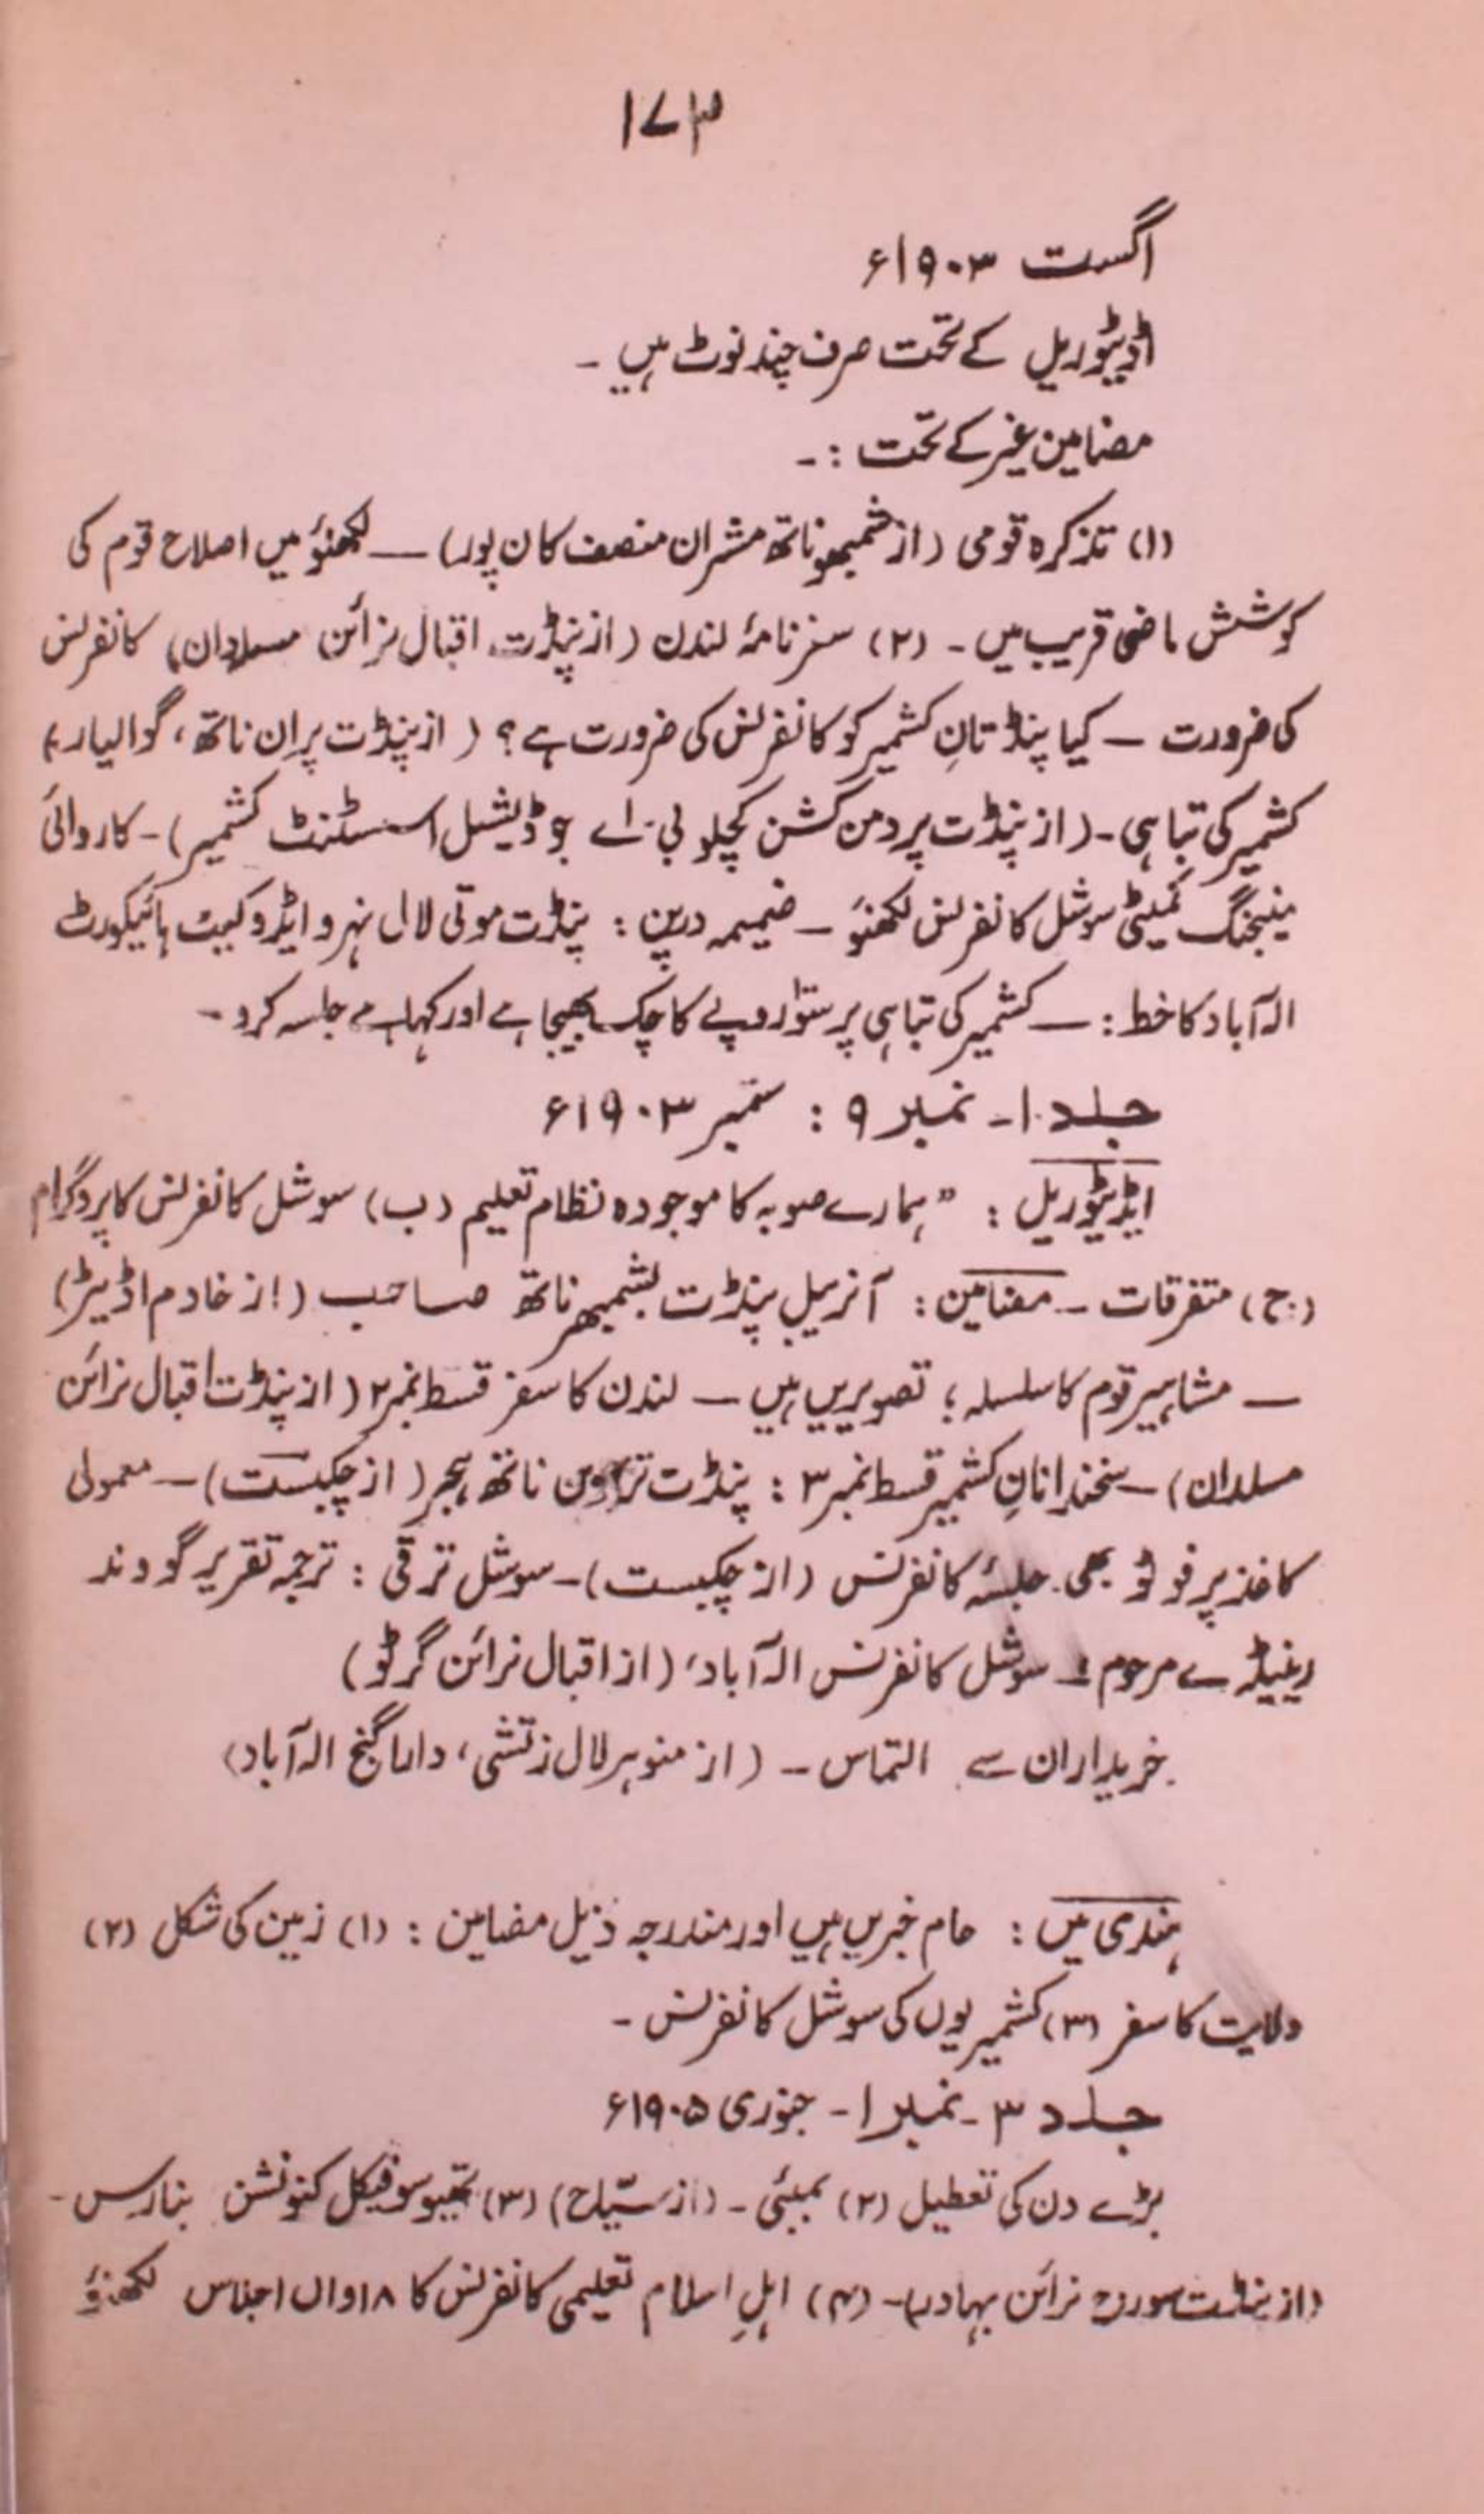 ۱۷۳
اگست ۱۹۰۳ء
اڈیٹوریل کے تحت صرف چند نوٹ ہیں ۔
مضامین غیر کے تحت :۔
(۱) تذکرہ قومی (از شمبھو ناتھ مشران منصف کان پور) — لکھنؤ میں اصلاح قوم کی
کوشش ماضی قریب میں ۔ (۲) سفر نامۂ لندن (از پنڈت اقبال نرائن مسلدان) کانفرنس
کی ضرورت — کیا پنڈتانِ کشمیر کو کانفرنس کی ضرورت ہے؟ (از پنڈت پران ناتھ، گوالیار)
کشمیر کی تباہی ۔ (از پنڈت پردمن کشن کچلو بی۔اے جوڈیشیل اسسٹنٹ کشمیر) ۔ کاروائی
منیجنگ کمیٹی سوشل کانفرنس لکھنؤ — ضمیمہ درپن : پنڈت موتی لال نہرو ایڈوکیٹ ہائیکورٹ
الہ آباد کا خط : — کشمیر کی تباہی پر سَو روپے کا چک بھیجا ہے اور کہا ہے جلسہ کرو ۔
جلد ۱۔ نمبر ۹ : ستمبر ۱۹۰۳ء
ایڈیٹوریل : "ہمارے صوبہ کا موجودہ نظام تعلیم (ب) سوشل کانفرنس کا پروگرام
(ج) متفرقات ۔ مضامین : آنریبل پنڈت بشمبھر ناتھ صاحب (از خادم اڈیٹر)
— مشاہیر قوم کا سلسلہ ؛ تصویریں ہیں — لندن کا سفر قسط نمبر ۲ (از پنڈت اقبال نرائن
مسلدان) — سخندانانِ کشمیر قسط نمبر ۳ : پنڈت تربھون ناتھ ہجر (از چکبست) — معمولی
کاغذ پر فوٹو بھی ۔ جلسۂ کانفرنس (از چکبست) — سوشل ترقی : ترجمہ تقریر گووند
رینیڈے مرحوم : سوشل کانفرنس الہ آباد، (از اقبال نرائن گرٹو)
خریداران سے التماس — (از منوہر لال زتشی، داراگنج الہ آباد)
ہندی میں : عام خبریں ہیں اور مندرجہ ذیل مضامین : (۱) زمین کی شکل (۲)
ولایت کا سفر (۳) کشمیریوں کی سوشل کانفرنس ۔
جلد ۳ ۔ نمبر ۱ ۔ جنوری ۱۹۰۵ء
بڑے دن کی تعطیل (۲) بمبئی ۔ (از سیّاح) (۳) تھیوسوفیکل کنونشن بنارس ۔
(از پنڈت سورج نرائن بہادر) ۔ (۴) اہلِ اسلام تعلیمی کانفرنس کا ۱۸واں اجلاس لکھنؤ